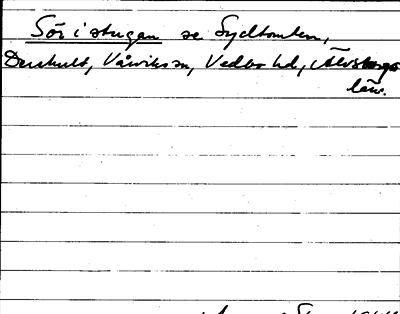 Sör i stugan se Sydtomten,
Durhult, Vårviks sn, Vedbo hd, Älvsborgs
län.